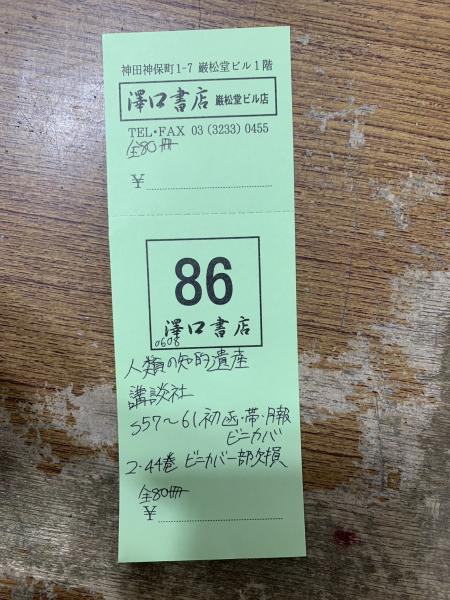 神田神保町1-7 巖松堂ビル1階
澤口書店 巖松堂ビル店
TEL・FAX 03(3233)0455
全80冊
¥
86
澤口書店
0608
人類の知的遺産
講談社
S57〜61初 函・帯・月報
ビニカバ
2・44巻 ビニカバ一部欠損
全80冊
¥